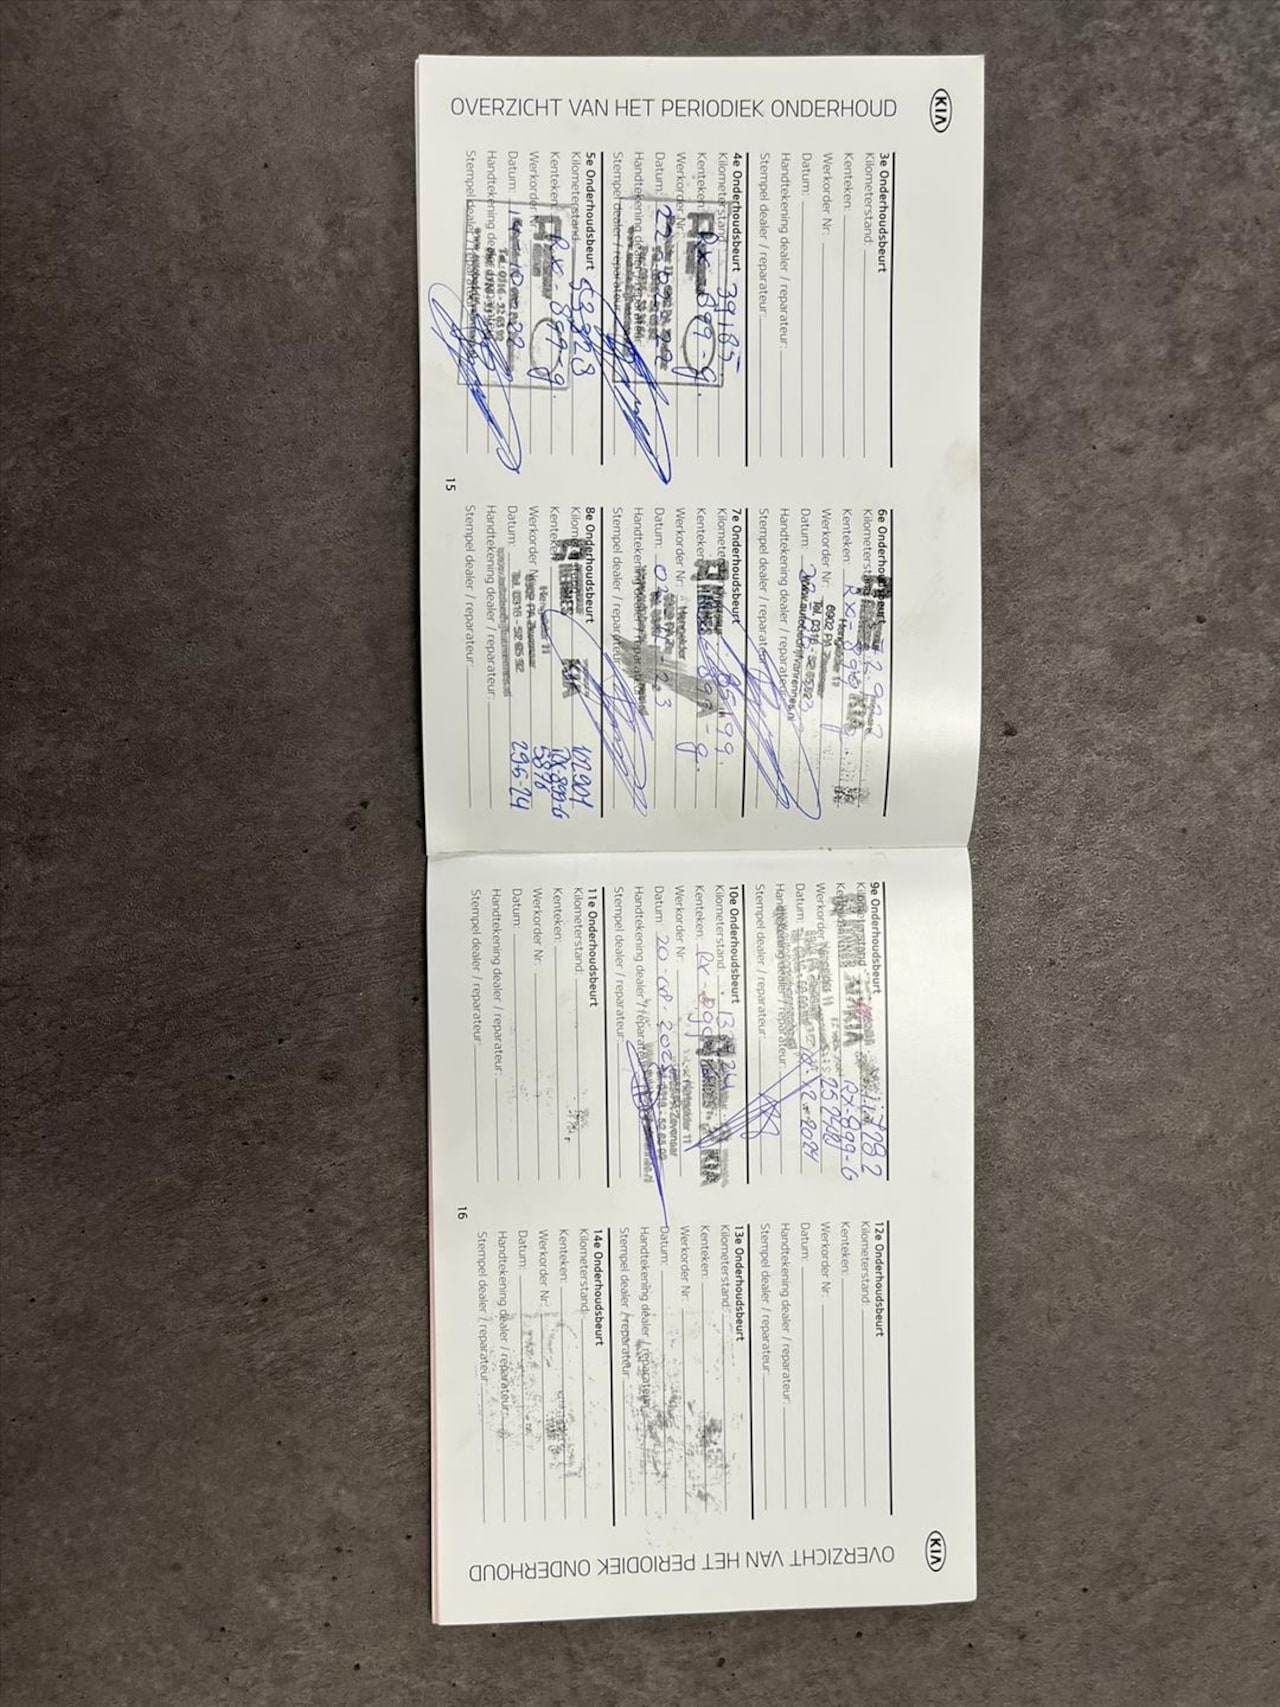 KIA
OVERZICHT VAN HET PERIODIEK ONDERHOUD
3e Onderhoudsbeurt
Kilometerstand:
Kenteken:
Werkorder Nr:
Datum:
Handtekening dealer / reparateur:
Stempel dealer / reparateur:
4e Onderhoudsbeurt
Kilometerstand: 39185
Kenteken: RX-899-g.
Werkorder Nr:
Datum:
Handtekening dealer / reparateur:
Stempel dealer / reparateur:
5e Onderhoudsbeurt
Kilometerstand: 53323
Kenteken: RX-899-g.
Werkorder Nr:
Datum: 14-10-22
Handtekening dealer / reparateur:
Stempel dealer / reparateur:
15
6e Onderhoudsbeurt
Kilometerstand:
Kenteken: RX-899-g
Werkorder Nr:
Datum:
Handtekening dealer / reparateur:
Stempel dealer / reparateur:
7e Onderhoudsbeurt
Kilometerstand:
Kenteken: 899-g.
Werkorder Nr:
Datum:
Handtekening dealer / reparateur:
Stempel dealer / reparateur:
8e Onderhoudsbeurt
Kilometerstand: 102901
Kenteken: RX-899-G
KIA
Werkorder Nr: 5878
Datum: 29-6-24
Handtekening dealer / reparateur:
Stempel dealer / reparateur:
9e Onderhoudsbeurt
Kilometerstand: 117282
KIA
Kenteken: RX-899-G
Werkorder Nr:
Datum: 12-2024
Handtekening dealer / reparateur:
Stempel dealer / reparateur:
10e Onderhoudsbeurt
Kilometerstand:
Kenteken: RX-899
KIA
Werkorder Nr:
Datum: 20-08-2025
Handtekening dealer / reparateur:
Stempel dealer / reparateur:
11e Onderhoudsbeurt
Kilometerstand:
Kenteken:
Werkorder Nr:
Datum:
Handtekening dealer / reparateur:
Stempel dealer / reparateur:
16
12e Onderhoudsbeurt
Kilometerstand:
Kenteken:
Werkorder Nr:
Datum:
Handtekening dealer / reparateur:
Stempel dealer / reparateur:
13e Onderhoudsbeurt
Kilometerstand:
Kenteken:
Werkorder Nr:
Datum:
Handtekening dealer / reparateur:
Stempel dealer / reparateur:
14e Onderhoudsbeurt
Kilometerstand:
Kenteken:
Werkorder Nr:
Datum:
Handtekening dealer / reparateur:
Stempel dealer / reparateur:
KIA
OVERZICHT VAN HET PERIODIEK ONDERHOUD